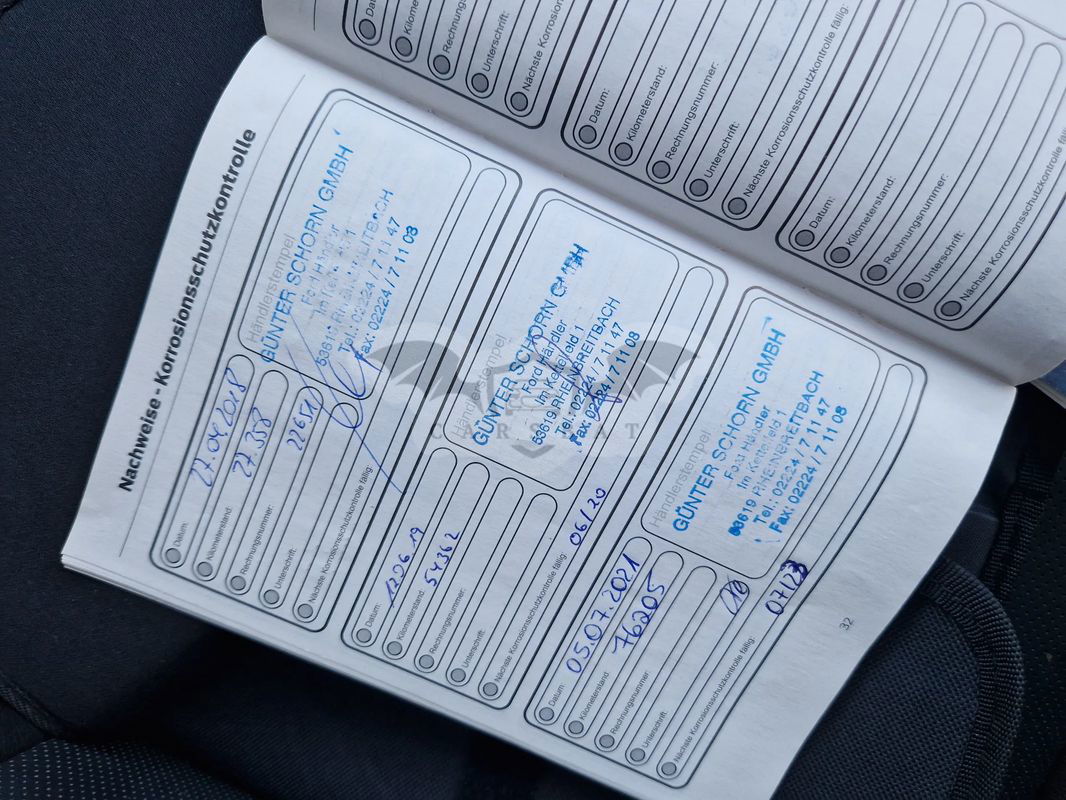 Nachweise - Korrosionsschutzkontrolle
Händlerstempel
GÜNTER SCHORN GMBH
Ford Händler
53619 RHEINBREITBACH
Tel.: 02224 / 7 11 47
Fax: 02224 / 7 11 08
Datum: 27.04.2018
Kilometerstand: 27.358
Rechnungsnummer:
Unterschrift:
Nächste Korrosionsschutzkontrolle fällig:
Händlerstempel
GÜNTER SCHORN GMBH
Ford Händler
Im Kettelfeld 1
53619 RHEINBREITBACH
Tel.: 02224 / 7 11 47
Fax: 02224 / 7 11 08
Datum: 12.06.19
Kilometerstand: 54362
Rechnungsnummer:
Unterschrift:
Nächste Korrosionsschutzkontrolle fällig: 06/20
Händlerstempel
GÜNTER SCHORN GMBH
Ford Händler
Im Kettelfeld 1
53619 RHEINBREITBACH
Tel.: 02224 / 7 11 47
Fax: 02224 / 7 11 08
Datum: 05.07.2021
Kilometerstand 76205
Rechnungsnummer:
Unterschrift:
Nächste Korrosionsschutzkontrolle fällig: 07/23
32
Kilome
Rechnung
Unterschrift:
Nächste Korrosion
Datum:
Kilometerstand:
Rechnungsnummer:
Unterschrift:
Nächste Korrosionsschutzkontrolle fällig:
Datum:
Kilometerstand:
Rechnungsnummer:
Unterschrift:
Nächste Korrosionsschutzkontrolle